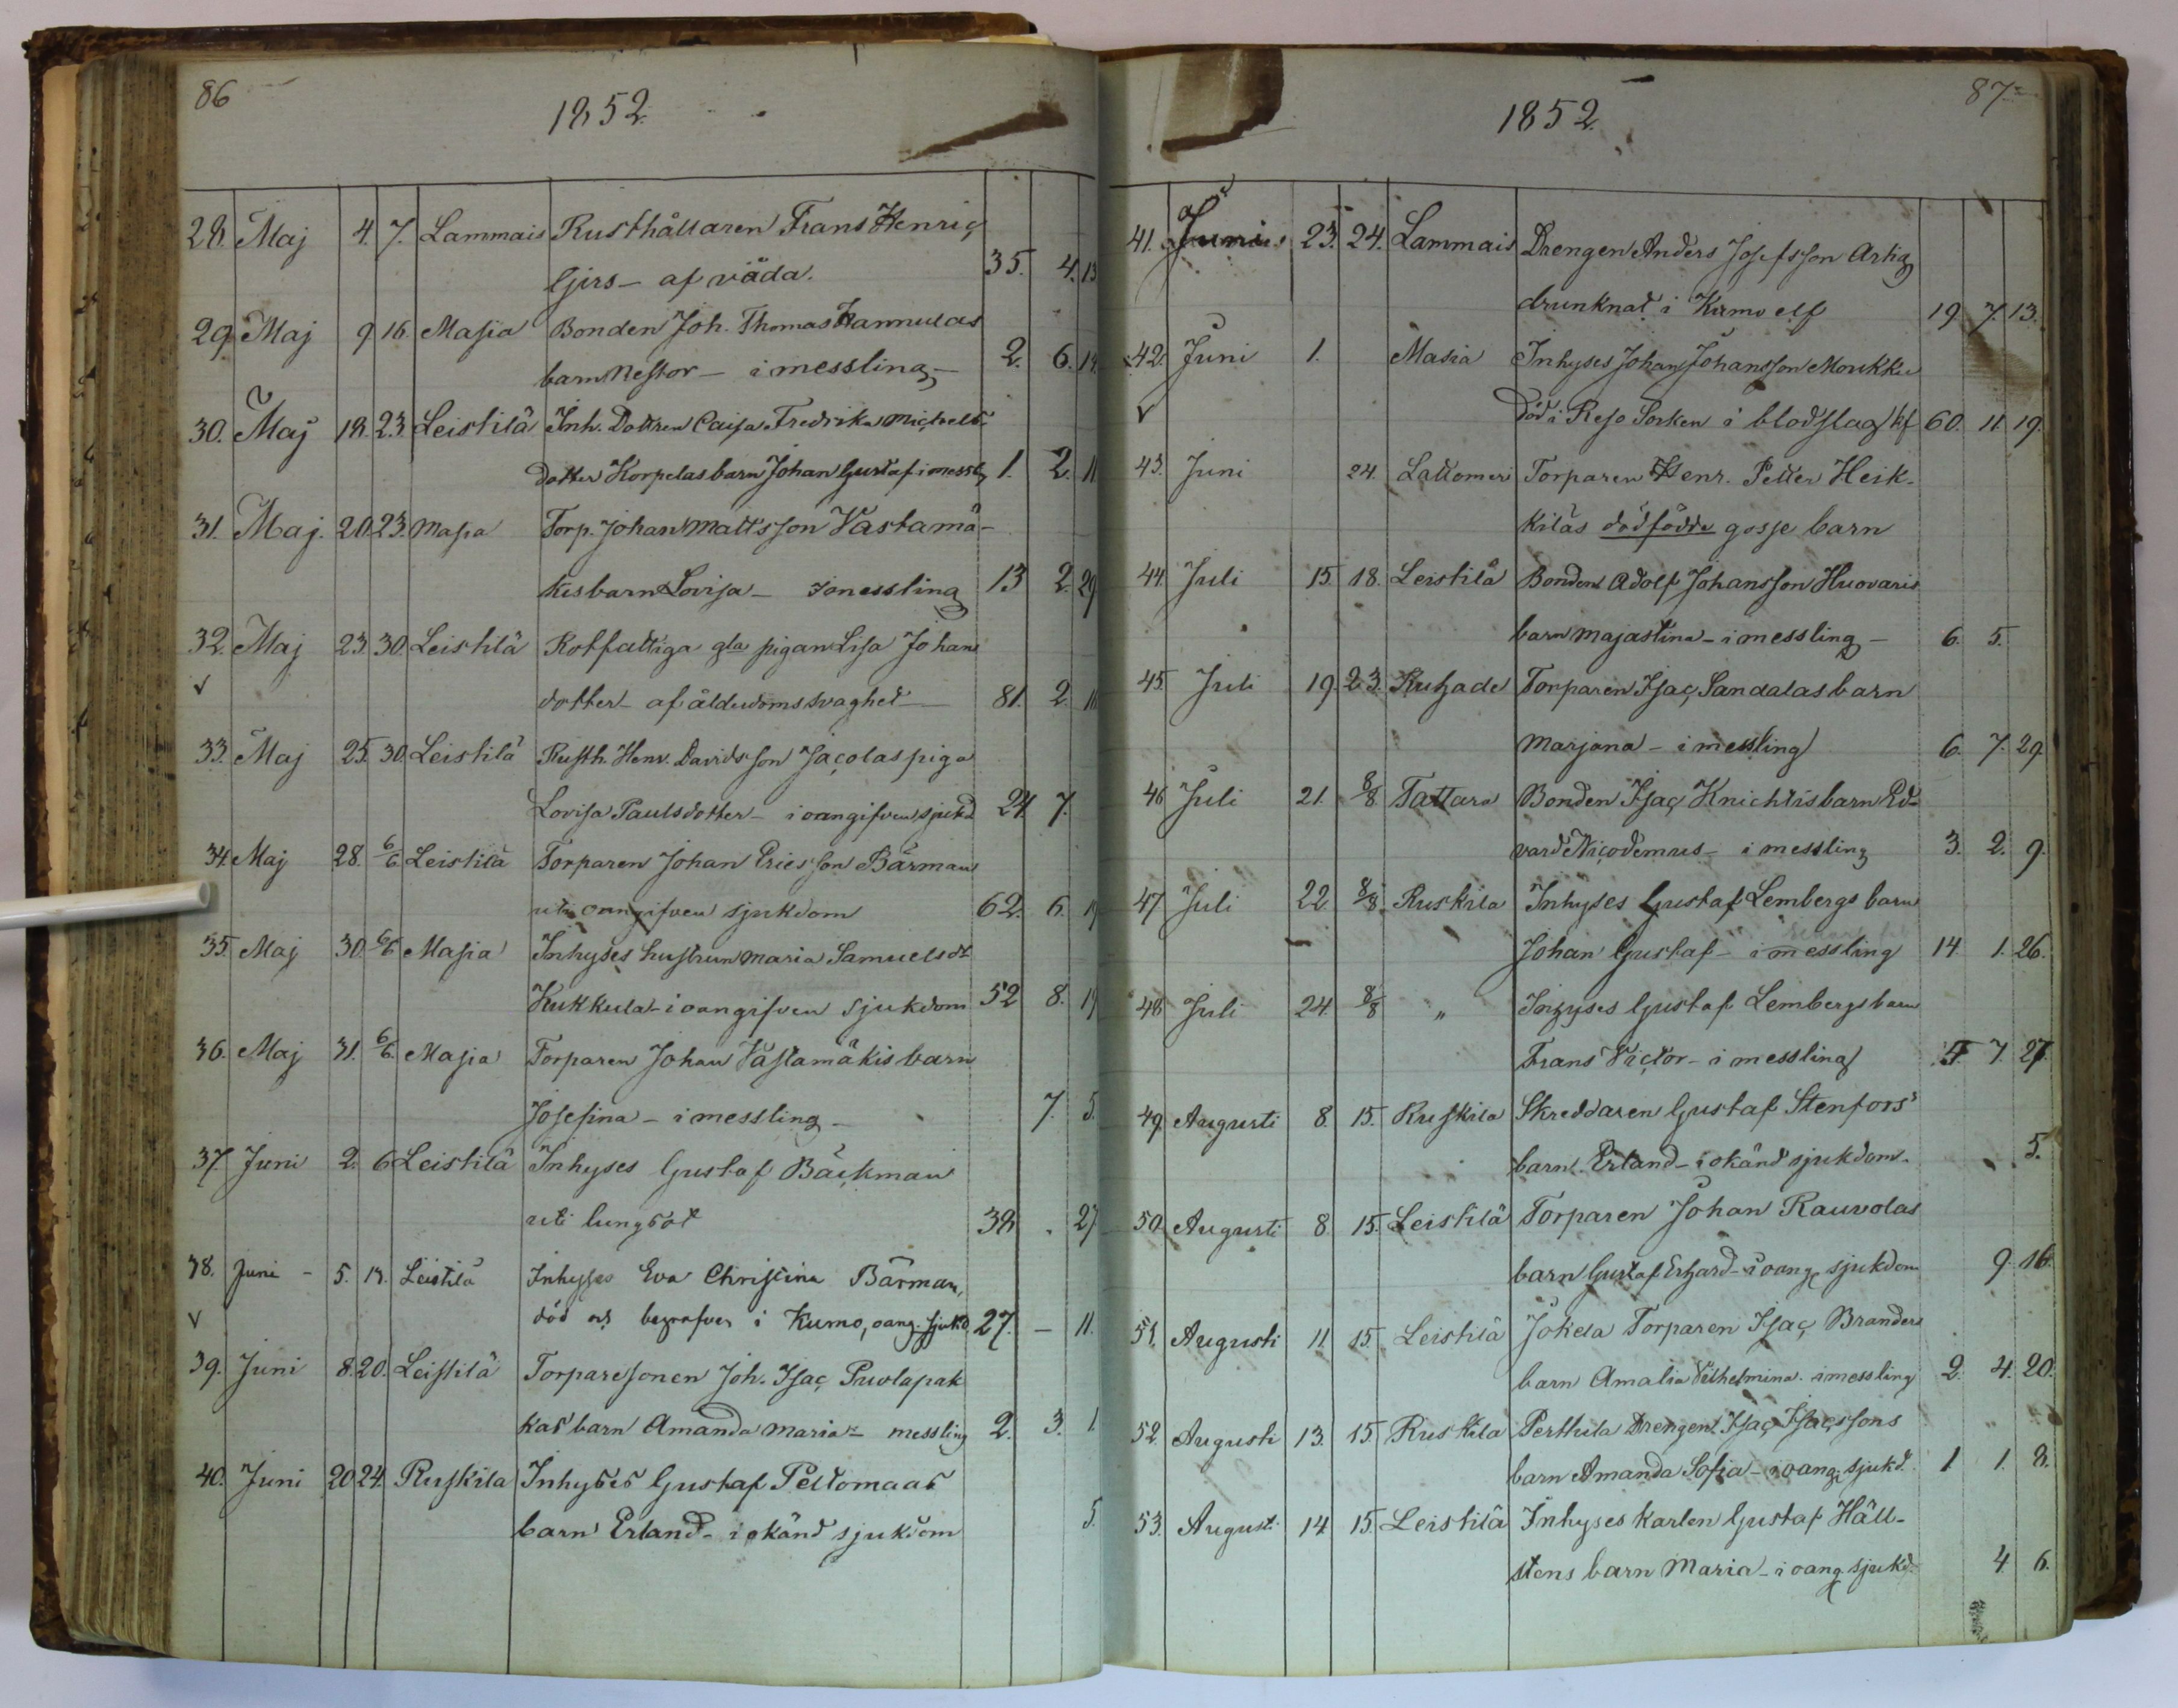 86
1852.
28. Maj 4. 7. Lammais Rusthållaren Frans Henric
Girs - af våda. 35. 4. 13
29. Maj 9 16. Masia Bonden Joh. Thomas Hannulas
barn Nestor - i messling - 2. 6. 14
30. Maj 18. 23. Leistilä Inh. Dottren Caisa Fredrika Michels
dotter Korpelas barn Johan Gustaf i messl. 1. 2. 11
31. Maj. 20. 23. Masia Torp. Johan Mattsson Västamä-
kis barn Lovisa - i messling 13 2. 29
32. Maj 23 30. Leistilä Rotfattiga gla pigan Lisa Johans
√ dotter - af ålderdomssvaghet - 81. 2.
33. Maj 25. 30. Leistilä Rusth. Henr. Davidsson Jacolas piga
Lovisa Paulsdotter - i oangifven sjukd 24. 7.
34. Maj 28. 6/6 Leistilä Torparen Johan Ericsson Bärman
uti oangifven sjukdom 62. 6. 19
35. Maj 30. 6/6 Masia Inhyses hustrun Maria Samuelsdt
Kukkula - i oangifven sjukdom 52 8. 19
36. Maj 31. 6/6. Masia Torparen Johan Västamäkis barn
Josefina - i messling - 7. 5.
37. Juni 2. 6 Leistilä Inhyses Gustaf Bäckman
uti lungsot 38. . 27
38. Juni - 5. 13. Leistilä Inhyses Eva Christina Bärman,
√ död och begrafven i Kumo, oang. sjukd. 27. - 11.
39. Juni 8. 20. Leistilä Torparesonen Joh. Isac Puolapak
kas barn Amanda Maria - messling 2. 3. 1.
40. Juni 20 24. Ruskila Inhyses Gustaf Peltomaas
barn Erland - i okänd sjukdom 5.
87
1852.
41. Junius 23. 24. Lammais Drengen Anders Josefsson Artig
drunknat i Kumo elf 19 7. 13.
42. Juni 1. Masia Inhyses Johan Johansson Moukku
√ död i Reso Socken i blodslag 60. 11. 19.
43. Juni 24. Lattomeri Torparen Henr. Petter Heik-
kiläs dödfödde gosse barn
44. Juli 15 18. Leistilä Bonden Adolf Johansson Huovaris
barn Majastina - i messling - 6. 5.
45. Juli 19. 23. Kuhade Torparen Isac Sandalas barn
Marjana - i messling 6. 7. 29.
46 Juli 21. 8/8 Tattara Bonden Isac Knichtis barn Ed-
vard Nicodemus - i messling 3. 2. 9.
47 Juli 22 8/8 Ruskila Inhyses Gustaf Lembergs barn
Johan Gustaf - i messling 14. 1. 26.
48 Juli 24 8/8 " Inhyses Gustaf Lembergs barn
Frans Victor - i messling 7 27.
49 Augusti 8. 15. Ruskila Skreddaren Gustaf Stenfors
barn Erland - i okänd sjukdom. 5.
50. Augusti 8. 15. Leistilä Torparen Johan Rauvolas
barn Gustaf Erhard - i oang. sjukdom 9. 16.
51. Augusti 11. 15. Leistilä Jokela Torparen Isac Branders
barn Amalia Vilhelmina. i messling 2. 4. 20.
52. Augusti 13. 15. Ruskila Perttula Drengen Isac Isacssons
barn Amanda Sofia - i oang. sjukd. 1 1. 8.
53. Augusti 14 15. Leistilä Inhyses Karlen Gustaf Häll-
stens barn Maria - i oang. sjukd. 4. 6.